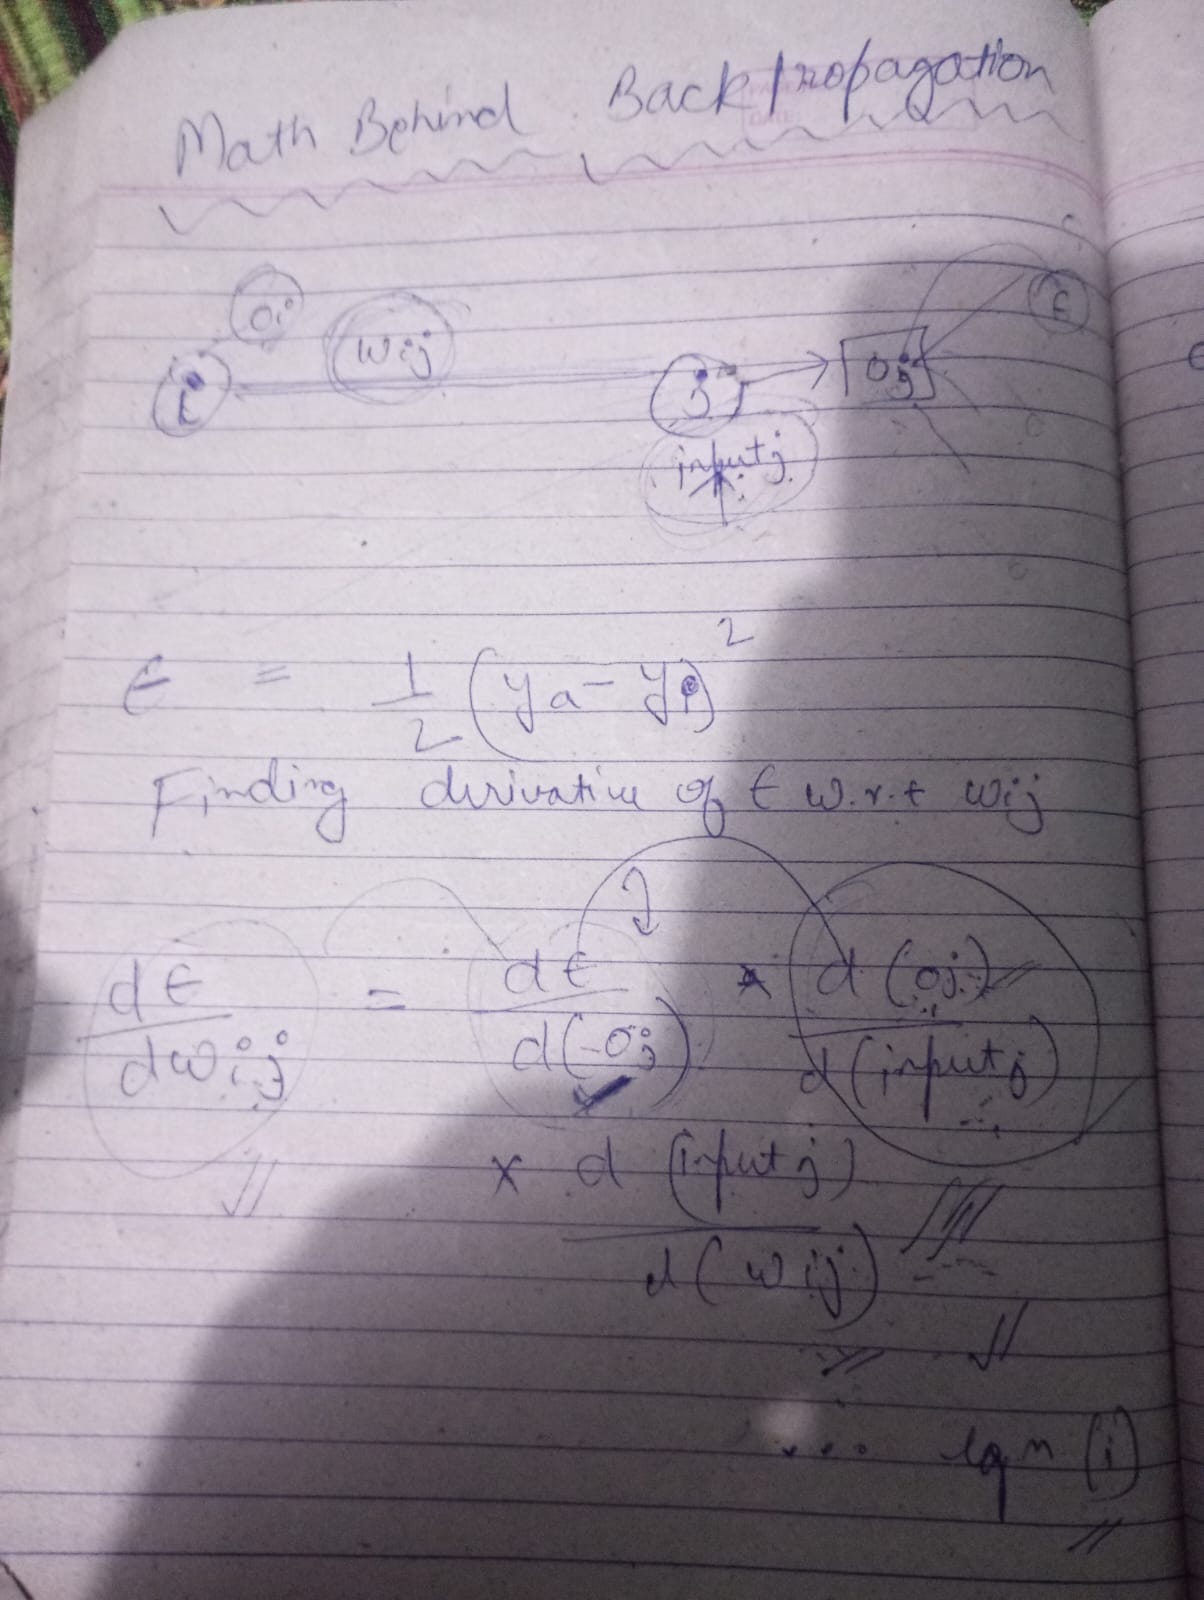 Math Behind Backpropagation
Oi
wij
i
j
Oj
E
inputj
E = 1/2 (ya - yp)²
Finding derivative of E w.r.t wij
dE/dwij = dE/d(Oj) * d(Oj)/d(inputj)
x d(inputj)/d(wij)
... eqn (i)